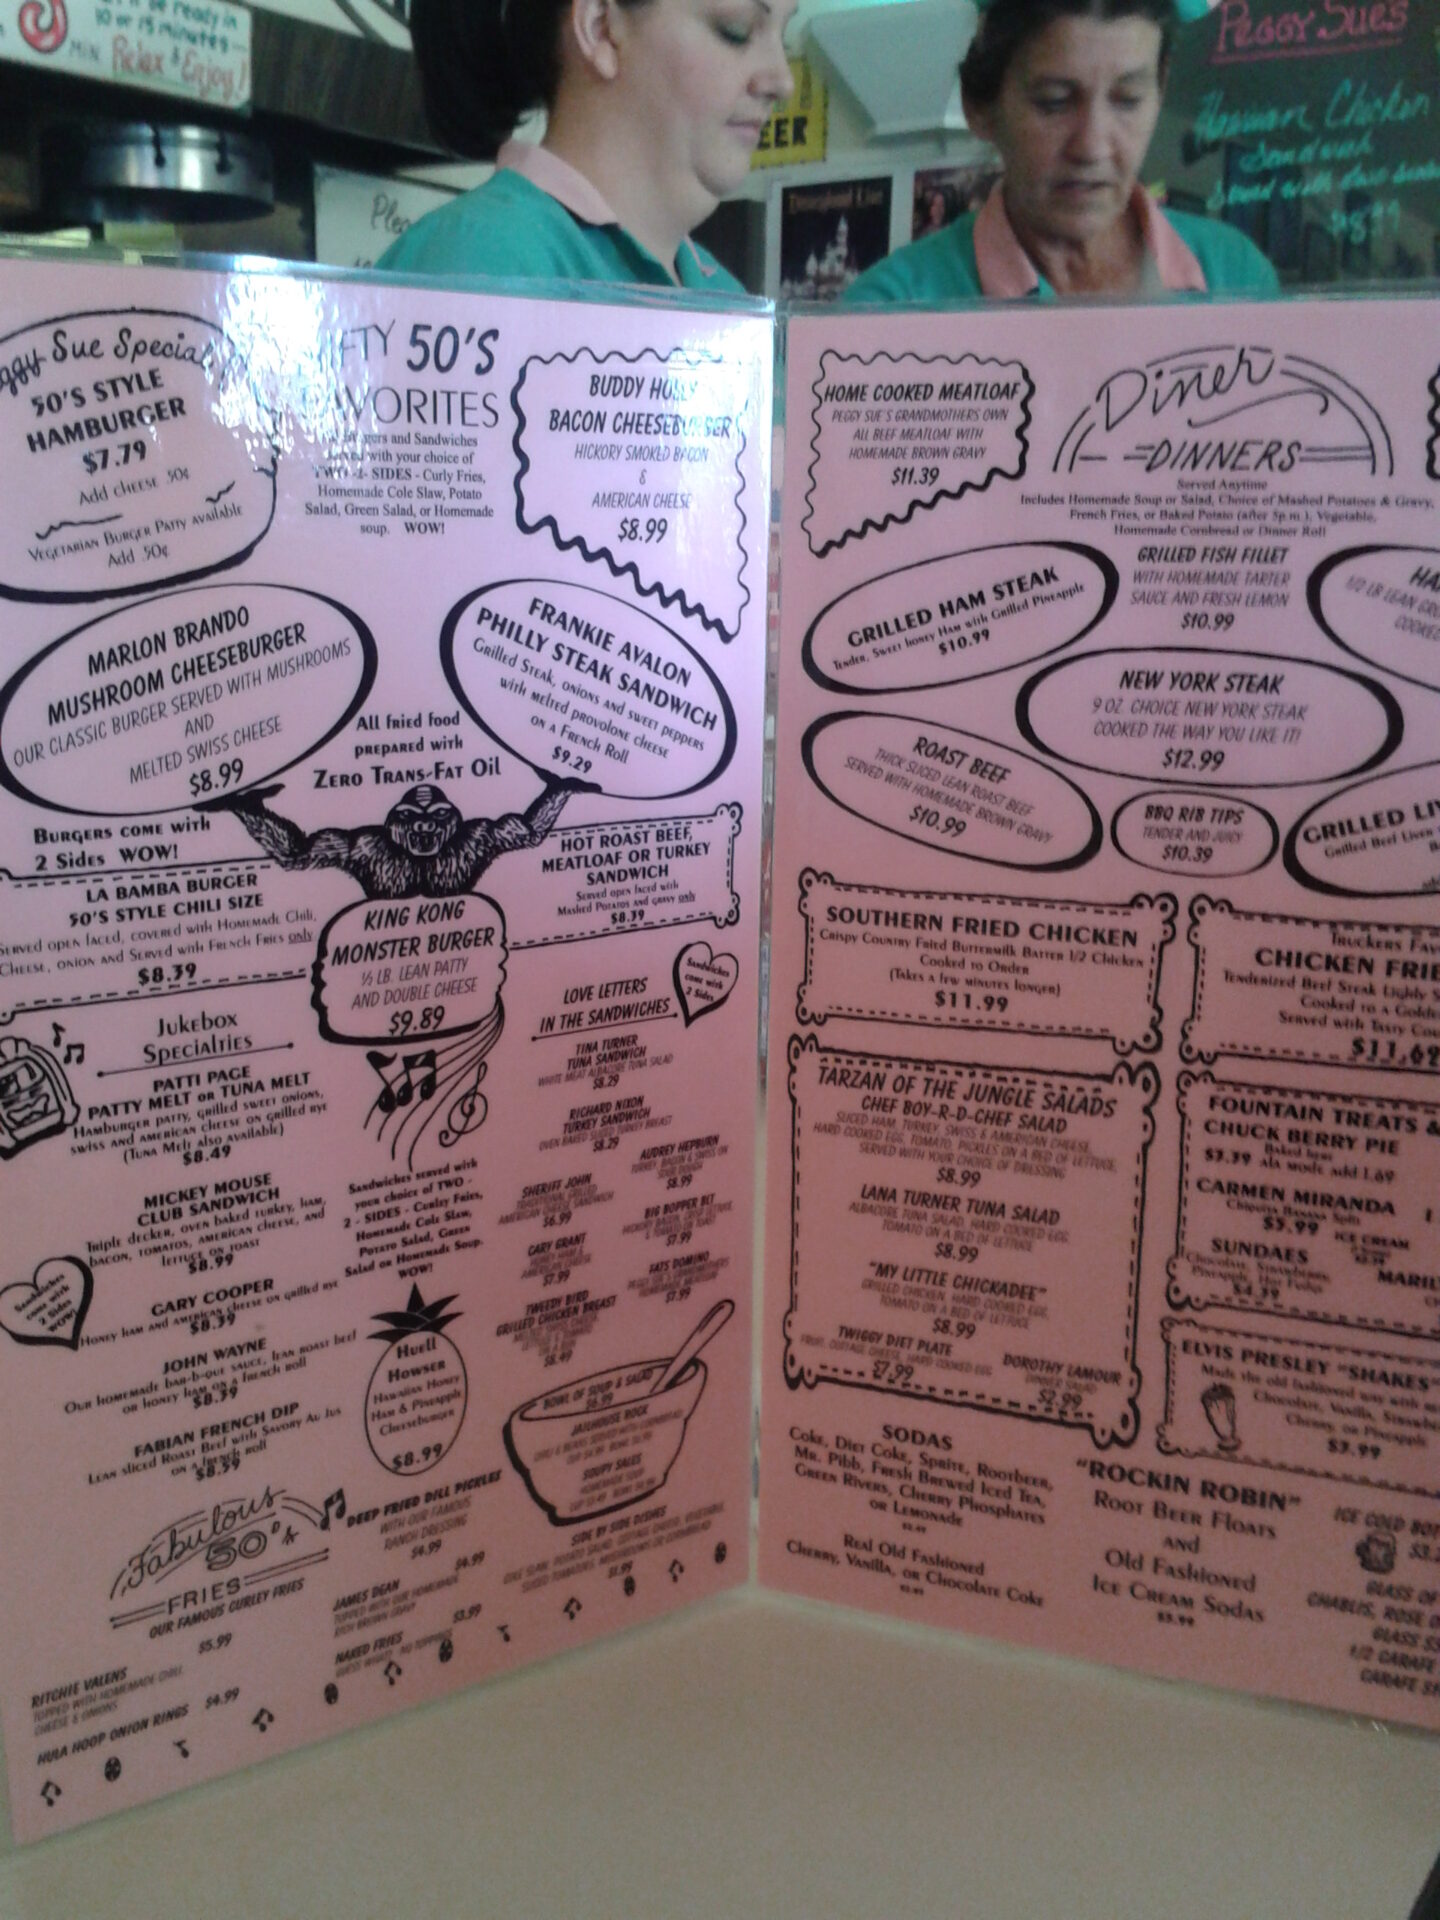 be ready in
10 or 15 minutes
MIN Relax & Enjoy!
BEER
Disneyland
Peggy Sue's
Hawaiian Chicken
Sandwich
Peggy Sue Special
50'S STYLE
HAMBURGER
$7.79
Add cheese .50¢
Vegetarian Burger Patty available
Add .50¢
50'S
FAVORITES
and Sandwiches
with your choice of
TWO -2- SIDES - Curly Fries,
Homemade Cole Slaw, Potato
Salad, Green Salad, or Homemade
soup. WOW!
BUDDY HOLLY
BACON CHEESEBURGER
HICKORY SMOKED BACON
&
AMERICAN CHEESE
$8.99
MARLON BRANDO
MUSHROOM CHEESEBURGER
OUR CLASSIC BURGER SERVED WITH MUSHROOMS
AND
MELTED SWISS CHEESE
$8.99
FRANKIE AVALON
PHILLY STEAK SANDWICH
Grilled Steak, onions and sweet peppers
with melted provolone cheese
on a French Roll
$9.29
All fried food
prepared with
Zero Trans-Fat Oil
Burgers come with
2 Sides WOW!
LA BAMBA BURGER
50'S STYLE CHILI SIZE
Served open faced, covered with Homemade Chili,
Cheese, onion and Served with French Fries only
$8.39
KING KONG
MONSTER BURGER
½ LB. LEAN PATTY
AND DOUBLE CHEESE
$9.89
HOT ROAST BEEF,
MEATLOAF OR TURKEY
SANDWICH
Served open faced with
Mashed Potatos and gravy only
$8.39
Jukebox
Specialties
PATTI PAGE
PATTY MELT or TUNA MELT
Hamburger patty, grilled sweet onions,
swiss and american cheese on grilled rye
(Tuna Melt also available)
$8.49
MICKEY MOUSE
CLUB SANDWICH
Triple decker, oven baked turkey, ham,
bacon, tomatos, american cheese, and
lettuce on toast
$8.99
Sandwiches
come with
2 Sides
WOW!
GARY COOPER
Honey ham and american cheese on grilled rye
$8.39
JOHN WAYNE
Our homemade bar-b-que sauce, lean roast beef
or honey ham on a french roll
$8.39
FABIAN FRENCH DIP
Lean sliced Roast Beef with Savory Au Jus
on a french roll
$8.59
Sandwiches served with
your choice of TWO -
2 - SIDES - Curley Fries,
Homemade Cole Slaw,
Potato Salad, Green
Salad or Homemade Soup.
WOW!
Huell
Howser
Hawaiian Honey
Ham & Pineapple
Cheeseburger
$8.99
LOVE LETTERS
IN THE SANDWICHES
Sandwiches
come with
2 Sides
TINA TURNER
TUNA SANDWICH
WHITE MEAT ALBACORE TUNA SALAD
$8.29
RICHARD NIXON
TURKEY SANDWICH
OVEN BAKED SLICED TURKEY BREAST
$8.29
SHERIFF JOHN
TRADITIONAL GRILLED
AMERICAN CHEESE SANDWICH
$6.99
AUDREY HEPBURN
TURKEY, BACON & SWISS ON
SOUR DOUGH
$8.99
CARY GRANT
HONEY HAM &
AMERICAN CHEESE
$7.99
BIG BOPPER BLT
HICKORY BACON, CRISP LETTUCE
& TOMATO ON TOAST
$7.99
TWEEDY BIRD
GRILLED CHICKEN BREAST
$8.49
FATS DOMINO
PEGGY SUE'S GRANDMOTHERS
HOMEMADE MEATLOAF
$7.99
BOWL OF SOUP & SALAD
$6.99
JAILHOUSE ROCK
CHILI & BEANS SERVED WITH CORNBREAD
SOUPY SALES
HOMEMADE SOUP
SIDE BY SIDE DISHES
$1.99
Fabulous
50's
FRIES
OUR FAMOUS CURLEY FRIES
$5.99
RITCHIE VALENS
TOPPED WITH HOMEMADE CHILI,
CHEESE & ONIONS
HULA HOOP ONION RINGS $4.99
DEEP FRIED DILL PICKLES
WITH OUR FAMOUS
RANCH DRESSING
$4.99
$4.99
JAMES DEAN
TOPPED WITH OUR HOMEMADE
RICH BROWN GRAVY
$3.99
NAKED FRIES
GUESS WHAT? NO TOPPINGS
HOME COOKED MEATLOAF
PEGGY SUE'S GRANDMOTHERS OWN
ALL BEEF MEATLOAF WITH
HOMEMADE BROWN GRAVY
$11.39
Diner
DINNERS
Served Anytime
Includes Homemade Soup or Salad, Choice of Mashed Potatoes & Gravy,
French Fries, or Baked Potato (after 5p.m.), Vegetable,
Homemade Cornbread or Dinner Roll
GRILLED HAM STEAK
Tender, Sweet honey Ham with Grilled Pineapple
$10.99
GRILLED FISH FILLET
WITH HOMEMADE TARTER
SAUCE AND FRESH LEMON
$10.99
1/2 LB LEAN
COOKED
NEW YORK STEAK
9 OZ. CHOICE NEW YORK STEAK
COOKED THE WAY YOU LIKE IT!
$12.99
ROAST BEEF
THICK SLICED LEAN ROAST BEEF
SERVED WITH HOMEMADE BROWN GRAVY
$10.99
BBQ RIB TIPS
TENDER AND JUICY
$10.39
GRILLED
Grilled Beef Liver
SOUTHERN FRIED CHICKEN
Crispy Country Fried Buttermilk Batter 1/2 Chicken
Cooked to Order
(Takes a few minutes longer)
$11.99
Truckers
CHICKEN
Tenderized Beef Steak Lighly
Cooked to a
Served with Tasty
$11.69
TARZAN OF THE JUNGLE SALADS
CHEF BOY-R-D-CHEF SALAD
SLICED HAM, TURKEY, SWISS & AMERICAN CHEESE,
HARD COOKED EGG, TOMATO, PICKLES ON A BED OF LETTUCE
SERVED WITH YOUR CHOICE OF DRESSING
$8.99
LANA TURNER TUNA SALAD
ALBACORE TUNA SALAD, HARD COOKED EGG,
TOMATO ON A BED OF LETTUCE
$8.99
"MY LITTLE CHICKADEE"
GRILLED CHICKEN, HARD COOKED EGG,
TOMATO ON A BED OF LETTUCE
$8.99
TWIGGY DIET PLATE
FRUIT, COTTAGE CHEESE, HARD COOKED EGG
$7.99
DOROTHY LAMOUR
DINNER SALAD
$2.99
FOUNTAIN TREATS &
CHUCK BERRY PIE
Baked here
$3.39 ala mode add 1.69
CARMEN MIRANDA
Chiquita Banana Split
$5.99
ICE CREAM
SUNDAES
Chocolate, Strawberry,
Pineapple, Hot Fudge
$4.39
ELVIS PRESLEY "SHAKES"
Made the old fashioned way with
Chocolate, Vanilla,
Cherry, or Pineapple
$3.99
SODAS
Coke, Diet Coke, Sprite, Rootbeer,
Mr. Pibb, Fresh Brewed Iced Tea,
Green Rivers, Cherry Phosphates
or Lemonade
Real Old Fashioned
Cherry, Vanilla, or Chocolate Coke
"ROCKIN ROBIN"
Root Beer Floats
and
Old Fashioned
Ice Cream Sodas
$3.99
ICE COLD
GLASS OF
CHABLIS, ROSE
GLASS
1/2 CARAFE
CARAFE